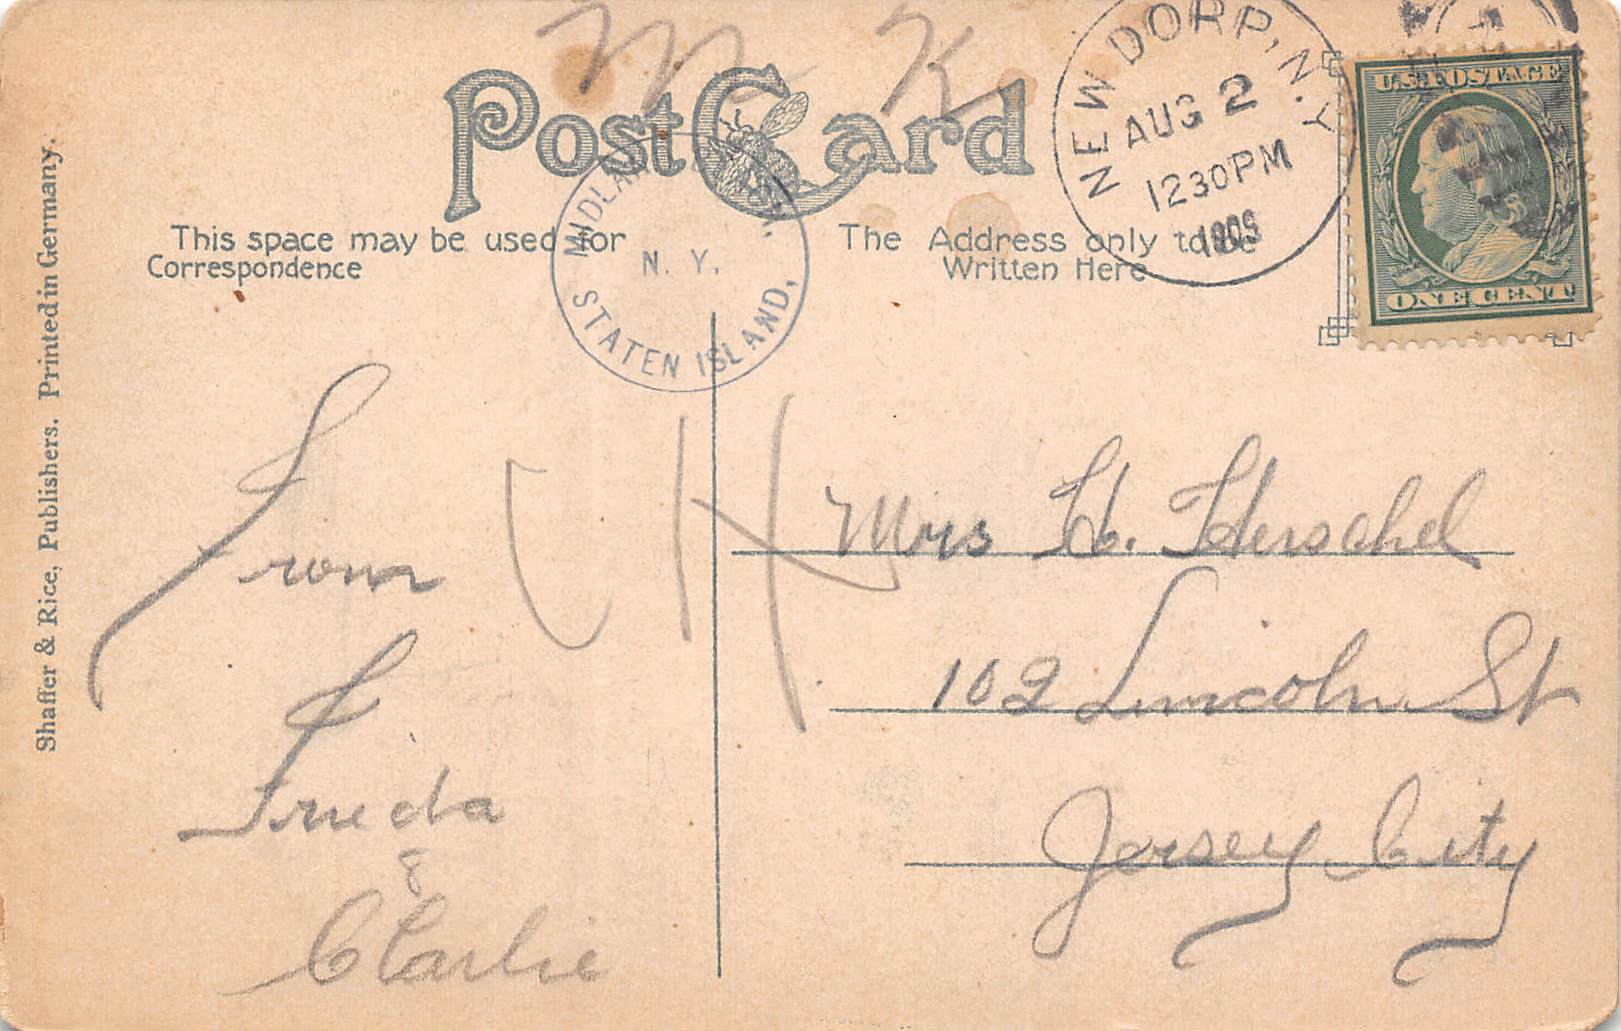 M K
Post Card
This space may be used for
Correspondence
The Address only to be
Written Here
NEW DORP, N.Y
AUG 2
1230PM
1909
U.S. POSTAGE
ONE CENT
N. Y.
STATEN ISLAND,
Shaffer & Rice, Publishers. Printed in Germany.
From
Frieda
&
Charlie
Mrs H. Herschel
102 Lincoln St
Jersey City